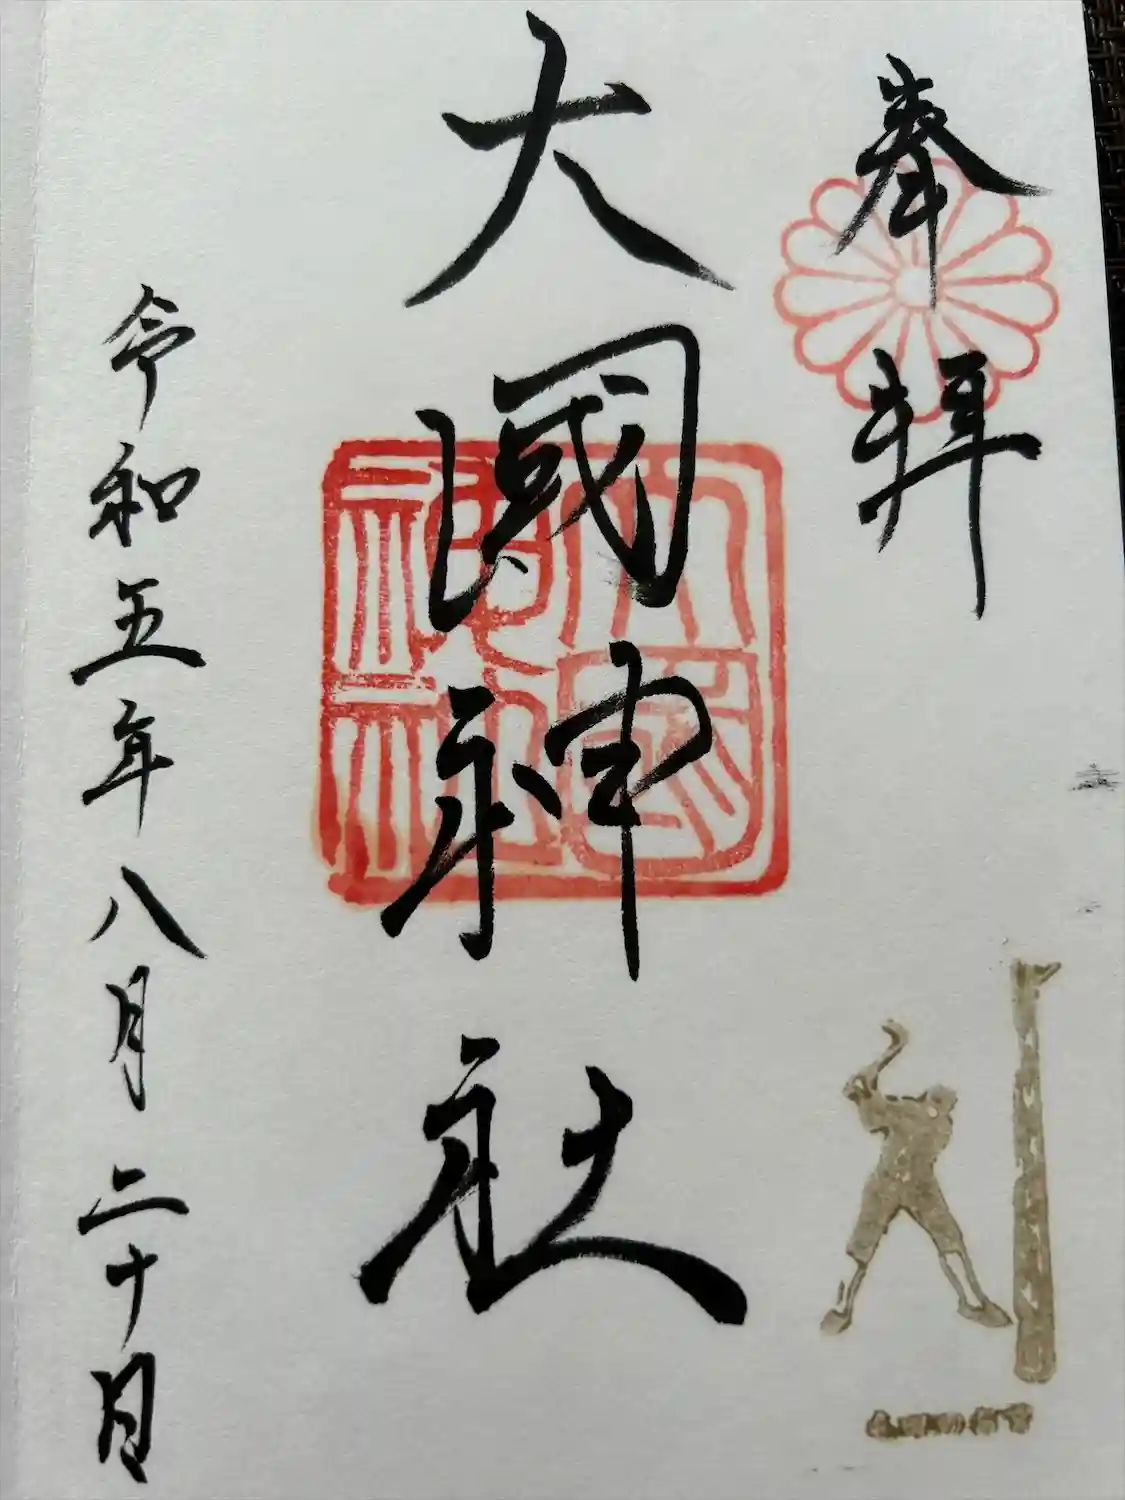 奉拝
大國神社
大国神社
令和五年八月二十日